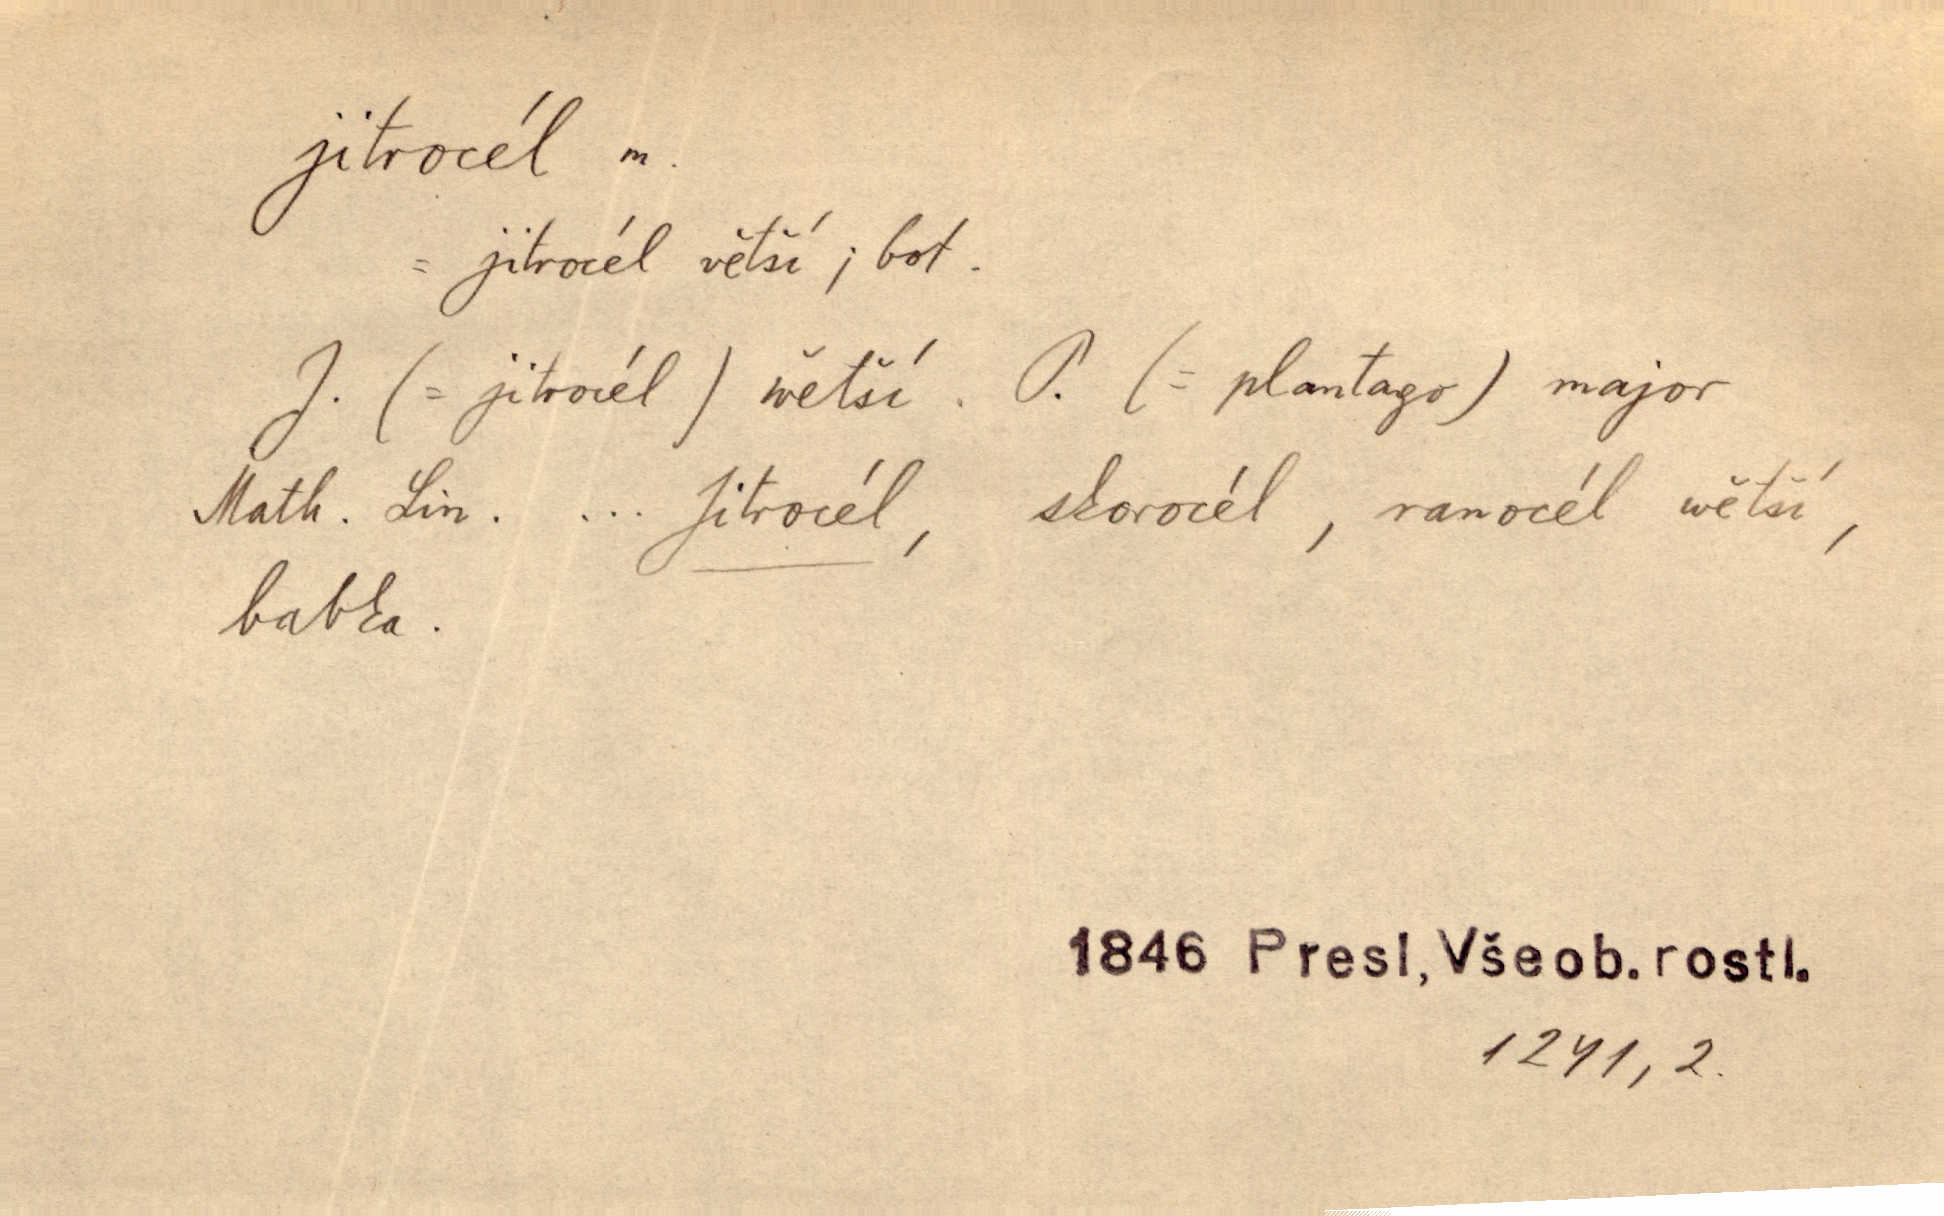 jitrocél m.
= jitrocél větší ; bot.
J. (= jitrocél) wětší. P. (= plantago) major
Math. Lin. ... Jitrocél, skorocél, ranocél wětší,
babka.
1846 Presl, Všeob. rostl.
1241, 2.